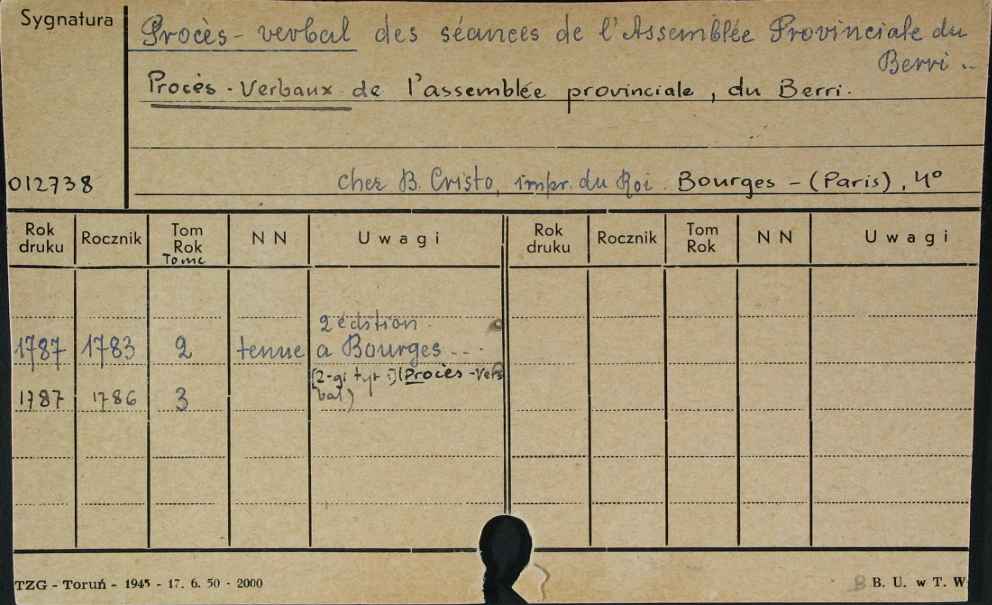 Sygnatura
Procès-verbal des séances de l'Assemblée Provinciale du
Berri ..
Procès-Verbaux de l'assemblée provinciale, du Berri.
012738
chez B. Cristo, impr. du Roi. Bourges - (Paris), 4°
Rok druku Rocznik Tom Rok NN Uwagi Rok druku Rocznik Tom Rok NN Uwagi
Tome
2 édition.
1787 1783 2 tenue a Bourges ...
(2-gi tyt :) (Procès-Ver
1787 1786 3 bal)
TZG - Toruń - 1945 - 17. 6. 50 - 2000
B. U. w T. W